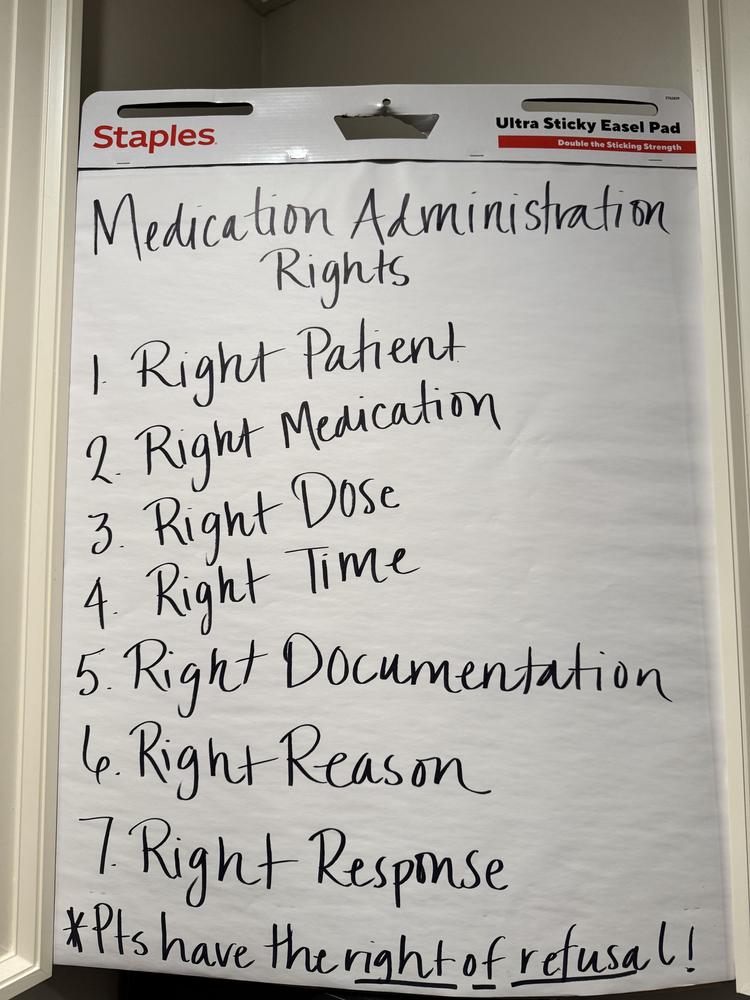 Staples
Ultra Sticky Easel Pad
Double the Sticking Strength
Medication Administration
Rights
1. Right Patient
2. Right Medication
3. Right Dose
4. Right Time
5. Right Documentation
6. Right Reason
7. Right Response
*Pts have the right of refusal!